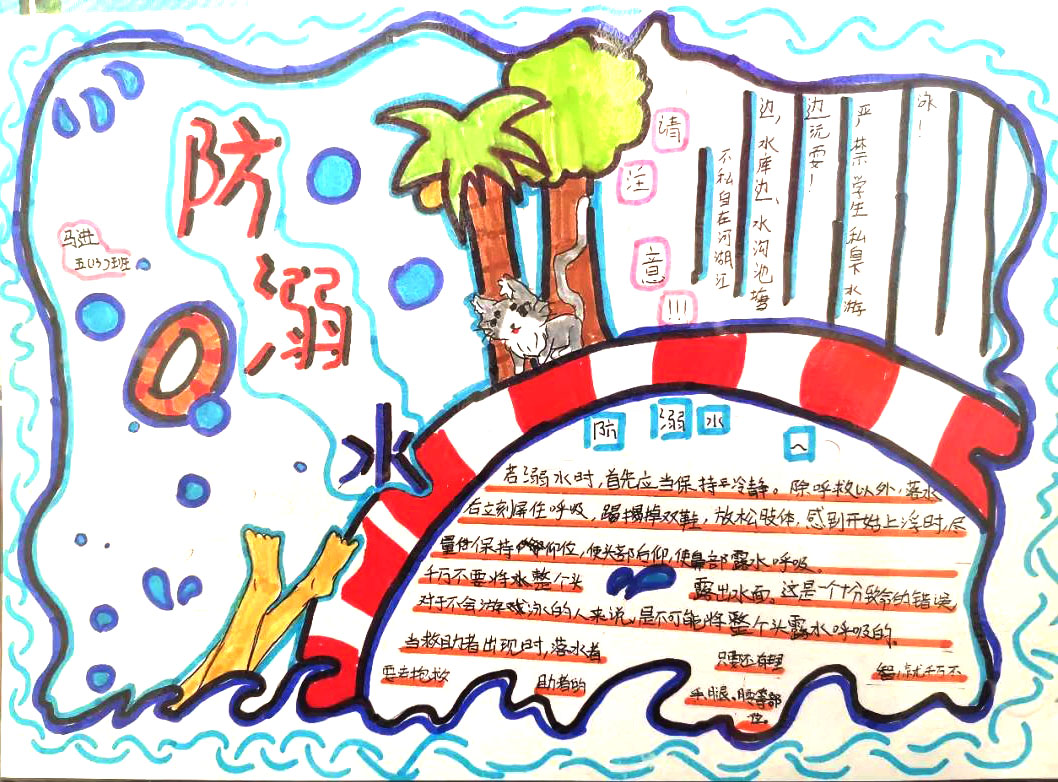 防
溺
水
马进
五(3)班
请
注
意
!!!
不私自在河湖江
边，水库边、水沟池塘
边玩耍！
严禁学生私自下水游
泳！
防溺水
若溺水时，首先应当保持冷静。除呼救以外，落水
后立刻屏住呼吸，踢掉双鞋，放松肢体，感到开始上浮时，尽
量保持仰位，使头部后仰，使鼻部露水呼吸。
千万不要将整个头
露出水面。这是一个十分致命的错误，
对于不会游泳的人来说，是不可能将整个头露水呼吸的。
当救助者出现时，落水者
只要还有理
智，就千万不
要去抱救
助者的
手、腿、腰等部
位。